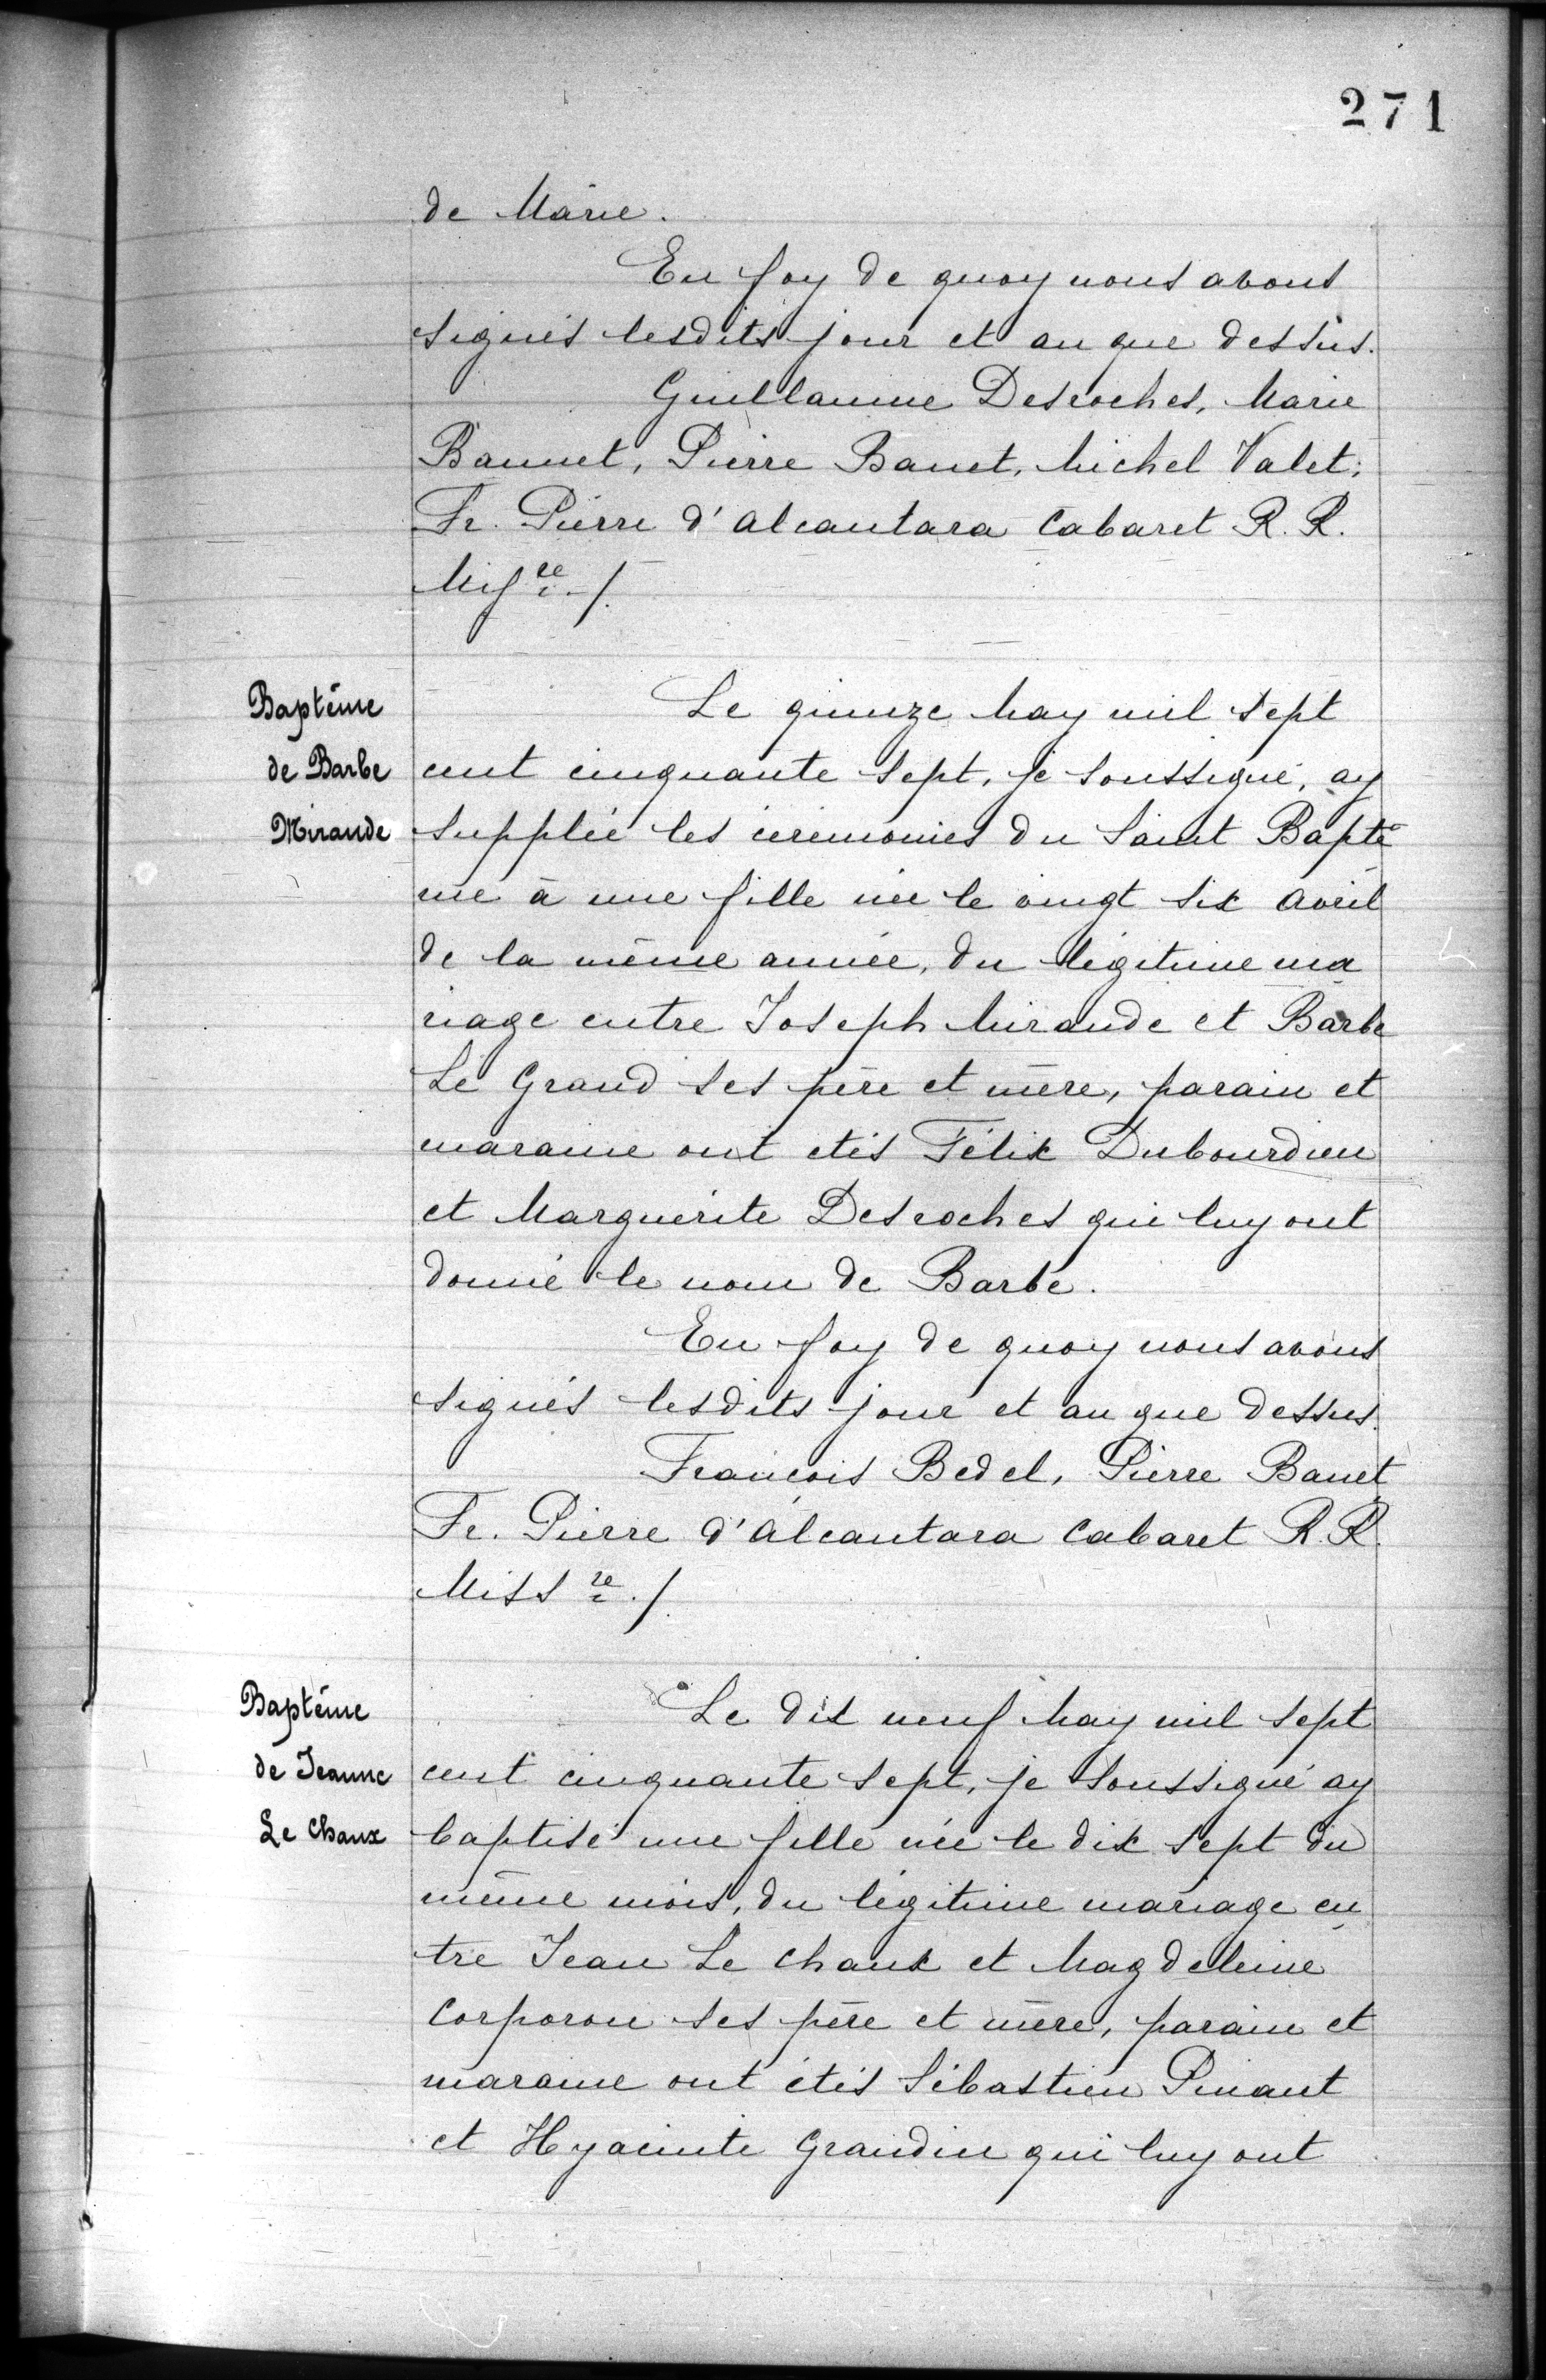 271
de Marie.
En foy de quoy nous avons
signés lesdits jour et an que dessus.
Guillaume Desroches, Marie
Bannet, Pierre Banet, Michel Valet,
Fr. Pierre d'Alcantara Cabaret R. R.
Mis^re ./.
Baptême
de Barbe
Mirande
Le quinze May mil sept
cent cinquante sept, je soussigné, ay
supplée les cérémonies du Saint Baptê
me à une fille née le vingt six avril
de la même année, du légitime ma
riage entre Joseph Mirande et Barbe
Le Grand ses père et mère, parain et
maraine ont étés Félix Dubourdieu
et Marguerite Desroches qui luy ont
donné le nom de Barbe.
En foy de quoy nous avons
signés lesdits jour et an que dessus.
François Bedel, Pierre Banet
Fr. Pierre d'Alcantara Cabaret R. R.
Miss^re ./.
Baptême
de Jeanne
Le Chaux
Le dix neuf May mil sept
cent cinquante sept, je soussigné ay
baptisé une fille née le dix sept du
même mois, du légitime mariage en
tre Jean Le Chaux et Magdeleine
Corporon ses père et mère, parain et
maraine ont étés Sébastien Pinant
et Hyacinte Grandin qui luy ont